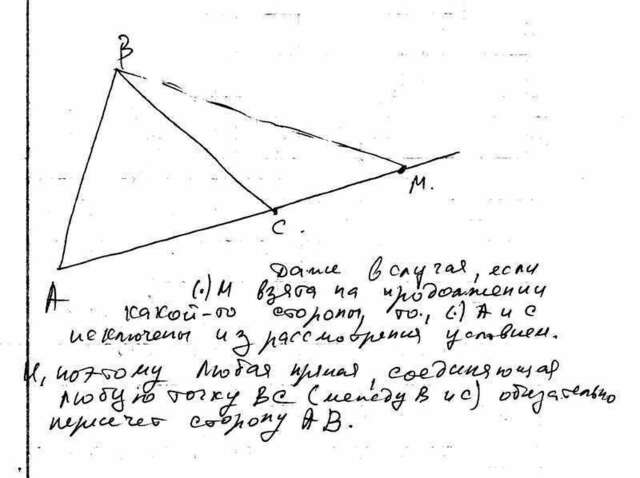 B
M.
C.
A
Даже в случая, если
(.) M взята на продолжении
какой-то стороны, то, (.) A и C
исключены из рассмотрения условием.
И, поэтому любая прямая, соединяющая
любую точку BC (между B и C) обязательно
пересечет сторону AB.